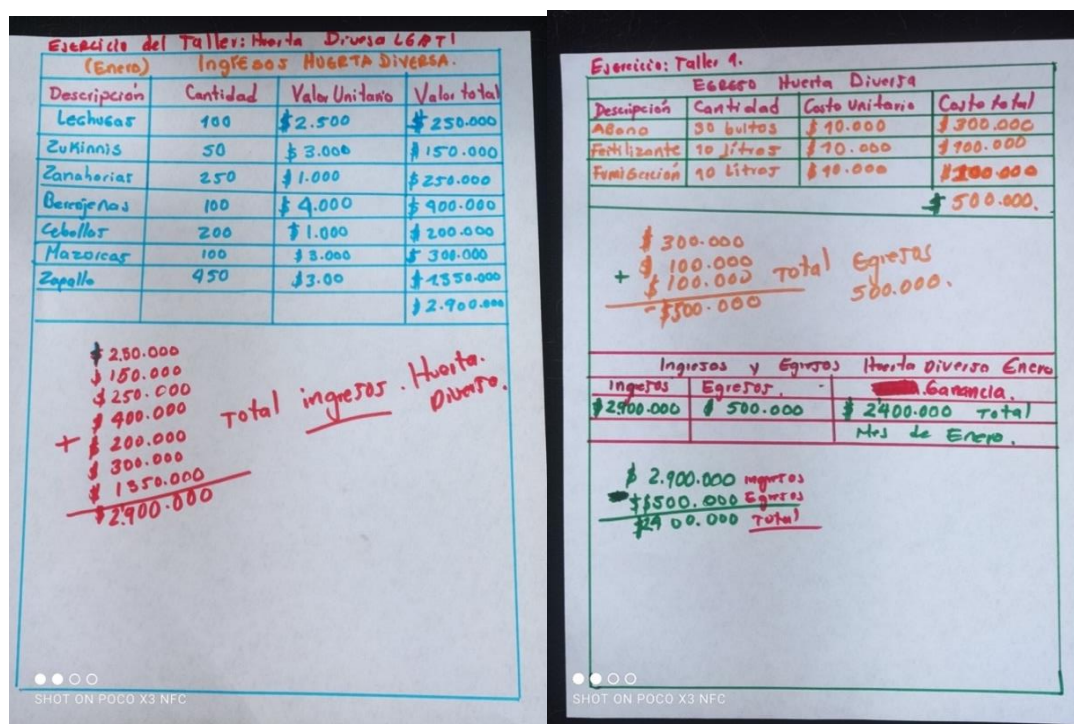 Ejercicio del Taller: Huerta Diversa LGBTI
(Enero) Ingresos HUERTA DIVERSA.
Descripción Cantidad Valor Unitario Valor total
Lechugas 100 $2.500 $250.000
Zukinnis 50 $3.000 $150.000
Zanahorias 250 $1.000 $250.000
Berrojenas 100 $4.000 $400.000
Cebollas 200 $1.000 $200.000
Mazorcas 100 $3.000 $300.000
Zapallo 450 $3.00 $1350.000
$2.900.000
$250.000
$150.000
$250.000
$400.000
+ $200.000
$300.000
$1350.000
$2.900.000
Total ingresos. Huerta
Diversa.
SHOT ON POCO X3 NFC
Ejercicio: Taller 1.
Egreso Huerta Diversa
Descipción Cantidad Costo Unitario Costo total
Abono 30 bultos $10.000 $300.000
Fertilizante 10 litros $10.000 $100.000
Fumigación 10 Litros $10.000 $100.000
$500.000.
$300.000
+ $100.000
$100.000
$500.000
Total Egresos
500.000.
Ingresos y Egresos Huerta Diversa Enero
Ingresos Egresos. Ganancia.
$2.900.000 $500.000 $2400.000 Total
Mes de Enero.
$2.900.000 ingresos
$500.000 Egresos
$2400.000 Total
SHOT ON POCO X3 NFC